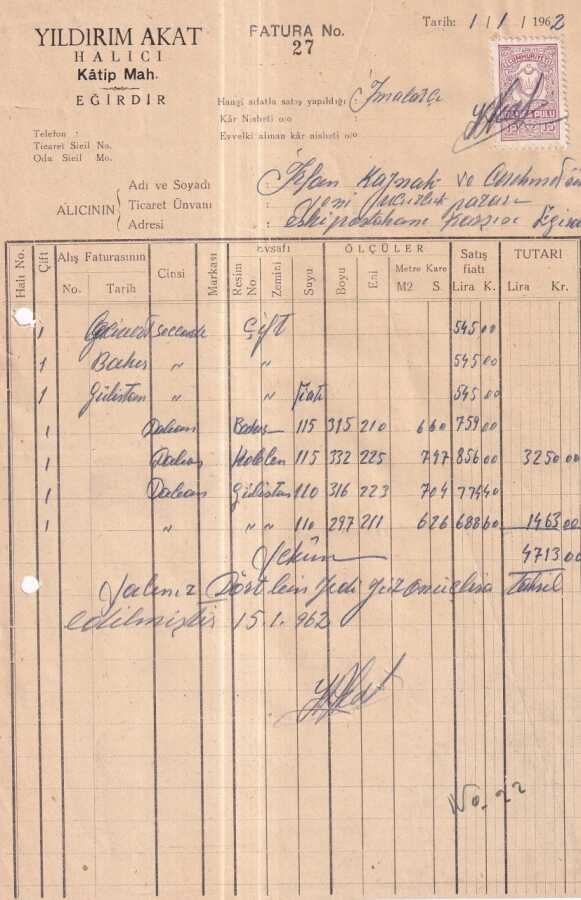 YILDIRIM AKAT
HALICI
Kâtip Mah.
EĞİRDİR
FATURA No.
27
Tarih: 1 / 1 / 1962
CUMHURİYETİ
PULU
15 15
Hangi sıfatla satış yapıldığı : İmalatçı
Kâr Nisbeti o/o :
Evvelki alınan kâr nisbeti o/o :
Telefon :
Ticaret Sicil No.
Oda Sicil No.
ALICININ
Adı ve Soyadı : İrfan Kaynak ve
Ticaret Ünvanı : Yeni pazarı
Adresi : eski postahane karşısı
Halı No. Çift Alış Faturasının No. Tarih Cinsi Markası Evsafı Resim No. Zemini Suyu ÖLÇÜLER Boyu Eni Metre Kare M2 S. Satış fiatı Lira K. TUTARI Lira Kr.
1 seccade Çift 545 00
1 Bahar " " 545 00
1 Gülistan " fiatı 545 00
1 115 315 210 660 759 00
1 115 332 225 747 856 00 3250 00
1 Gülistan 110 316 223 704 774 40
1 " " " 110 297 211 626 688 60 1463 00
Yekûn 4713 00
Yalınız Dört bin Yedi Yüz onüç lira tahsil
edilmiştir 15.1.962
No. 22